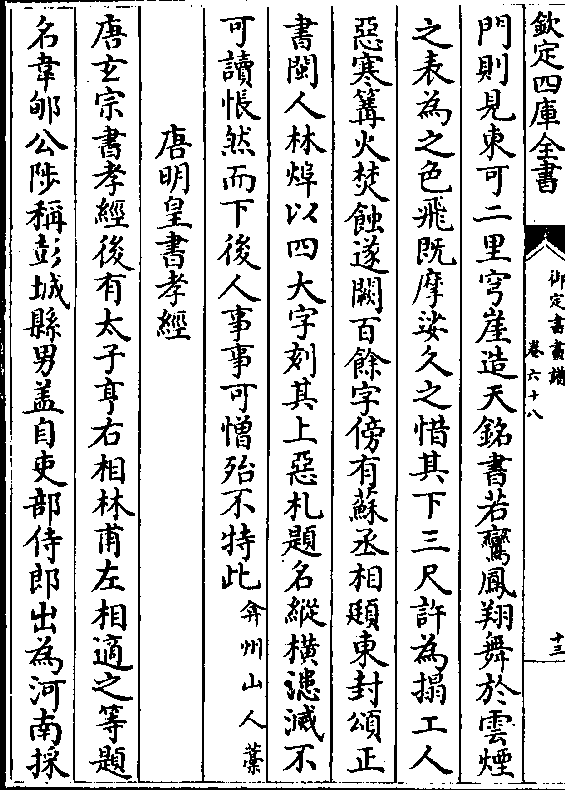 欽定四庫全書
御定書畫譜
卷六十八
十三
門則見東可二里穹崖造天銘書若鸞鳳翔舞於雲煙
之表為之色飛既摩娑久之惜其下三尺許為搨工人
惡寒篝火焚蝕遂闕百餘字傍有蘇丞相頲東封頌正
書閩人林焯以四大字刻其上惡札題名縱橫漶滅不
可讀悵然而下後人事事可憎殆不特此弇州山人藁
唐明皇書孝經
唐玄宗書孝經後有太子亨右相林甫左相適之等題
名韋郇公陟稱彭城縣男盖自吏部侍郎出為河南採